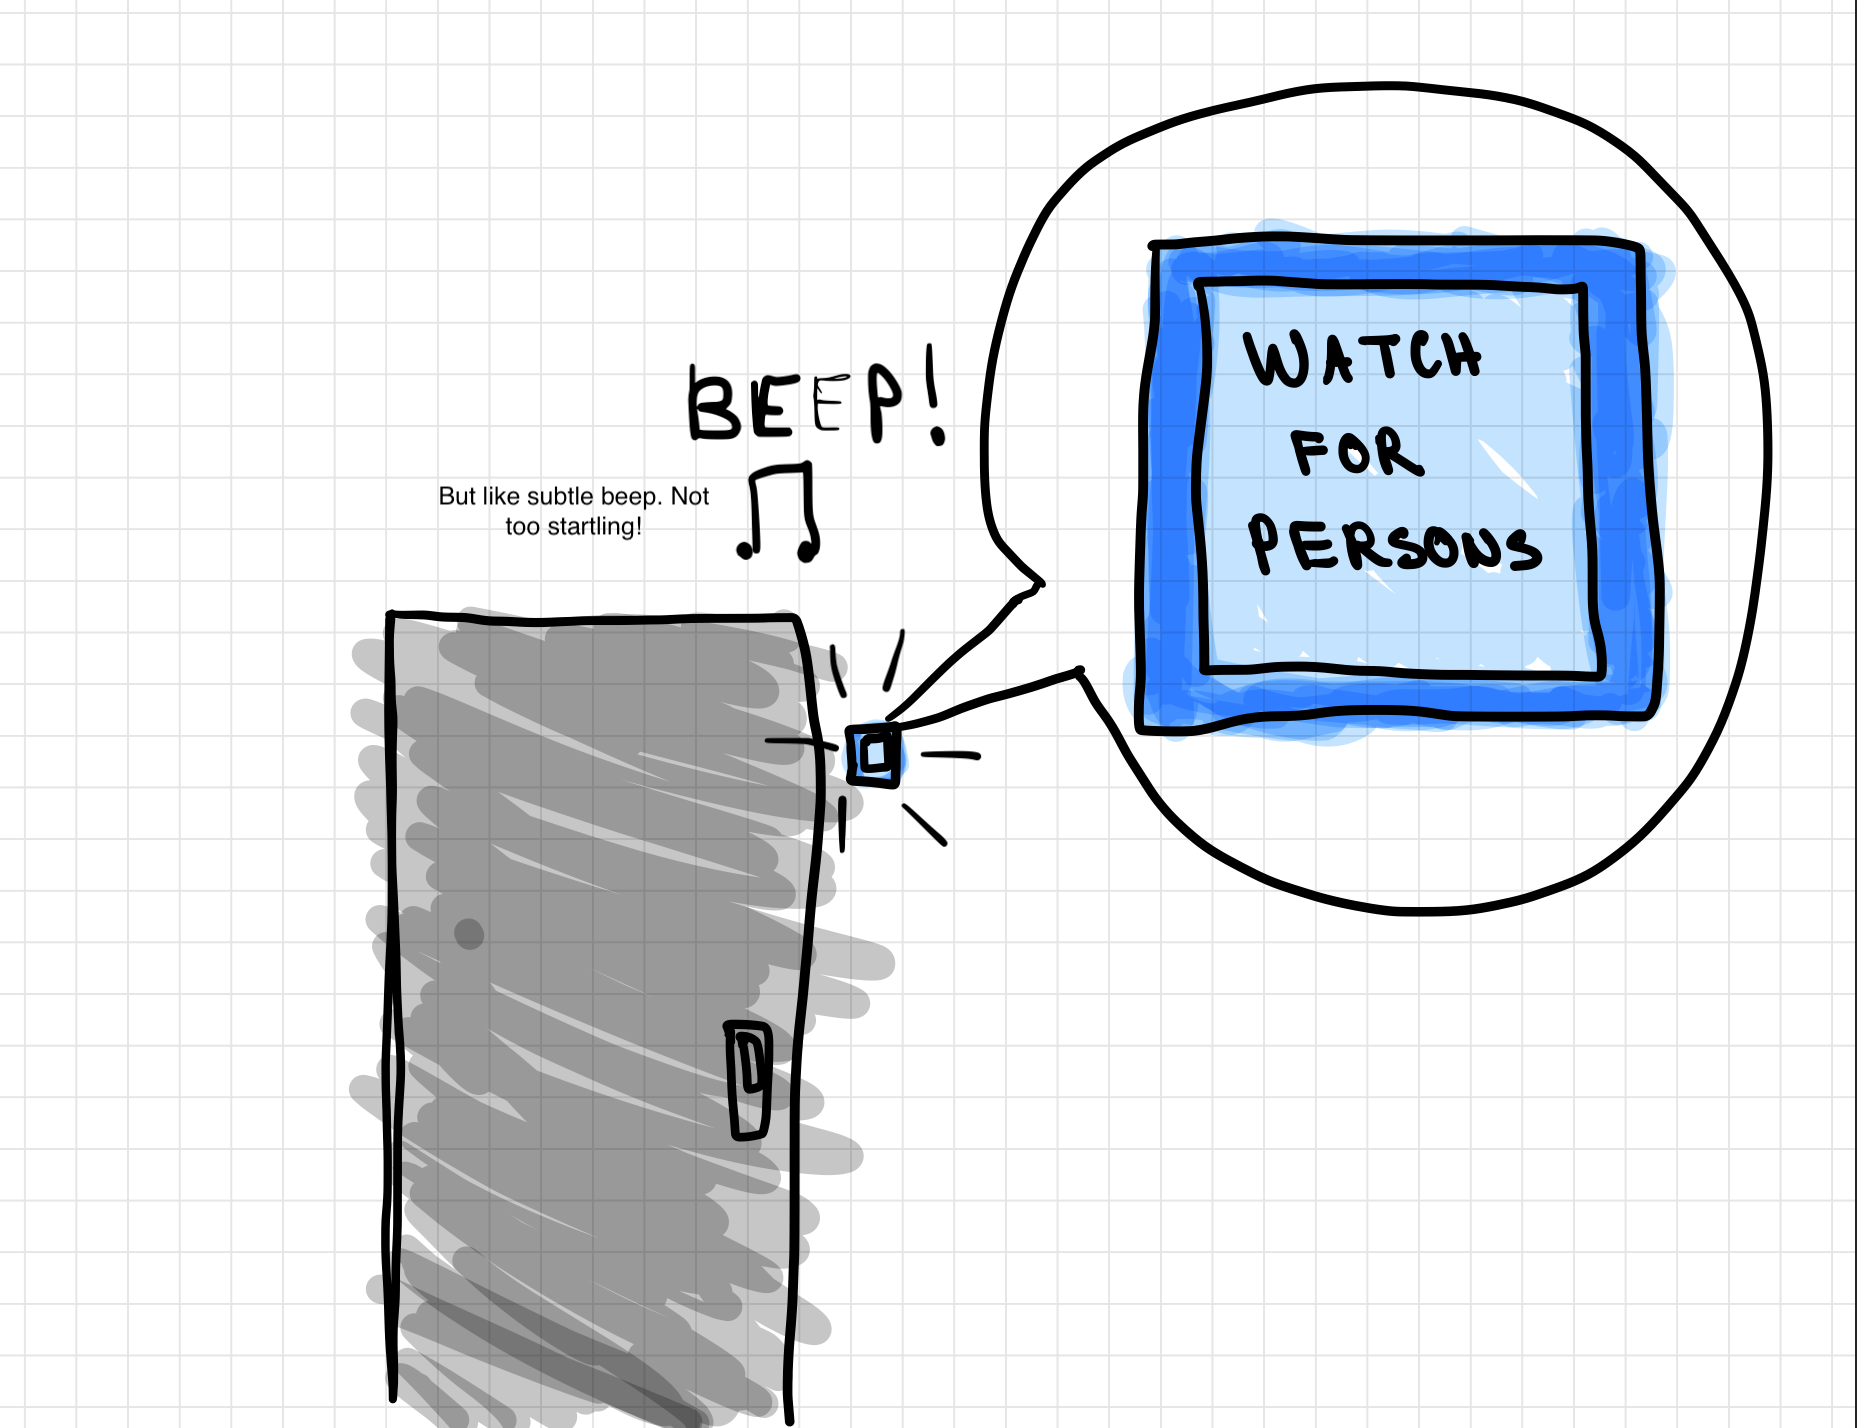 BEEP!
But like subtle beep. Not
too startling!
WATCH
FOR
PERSONS